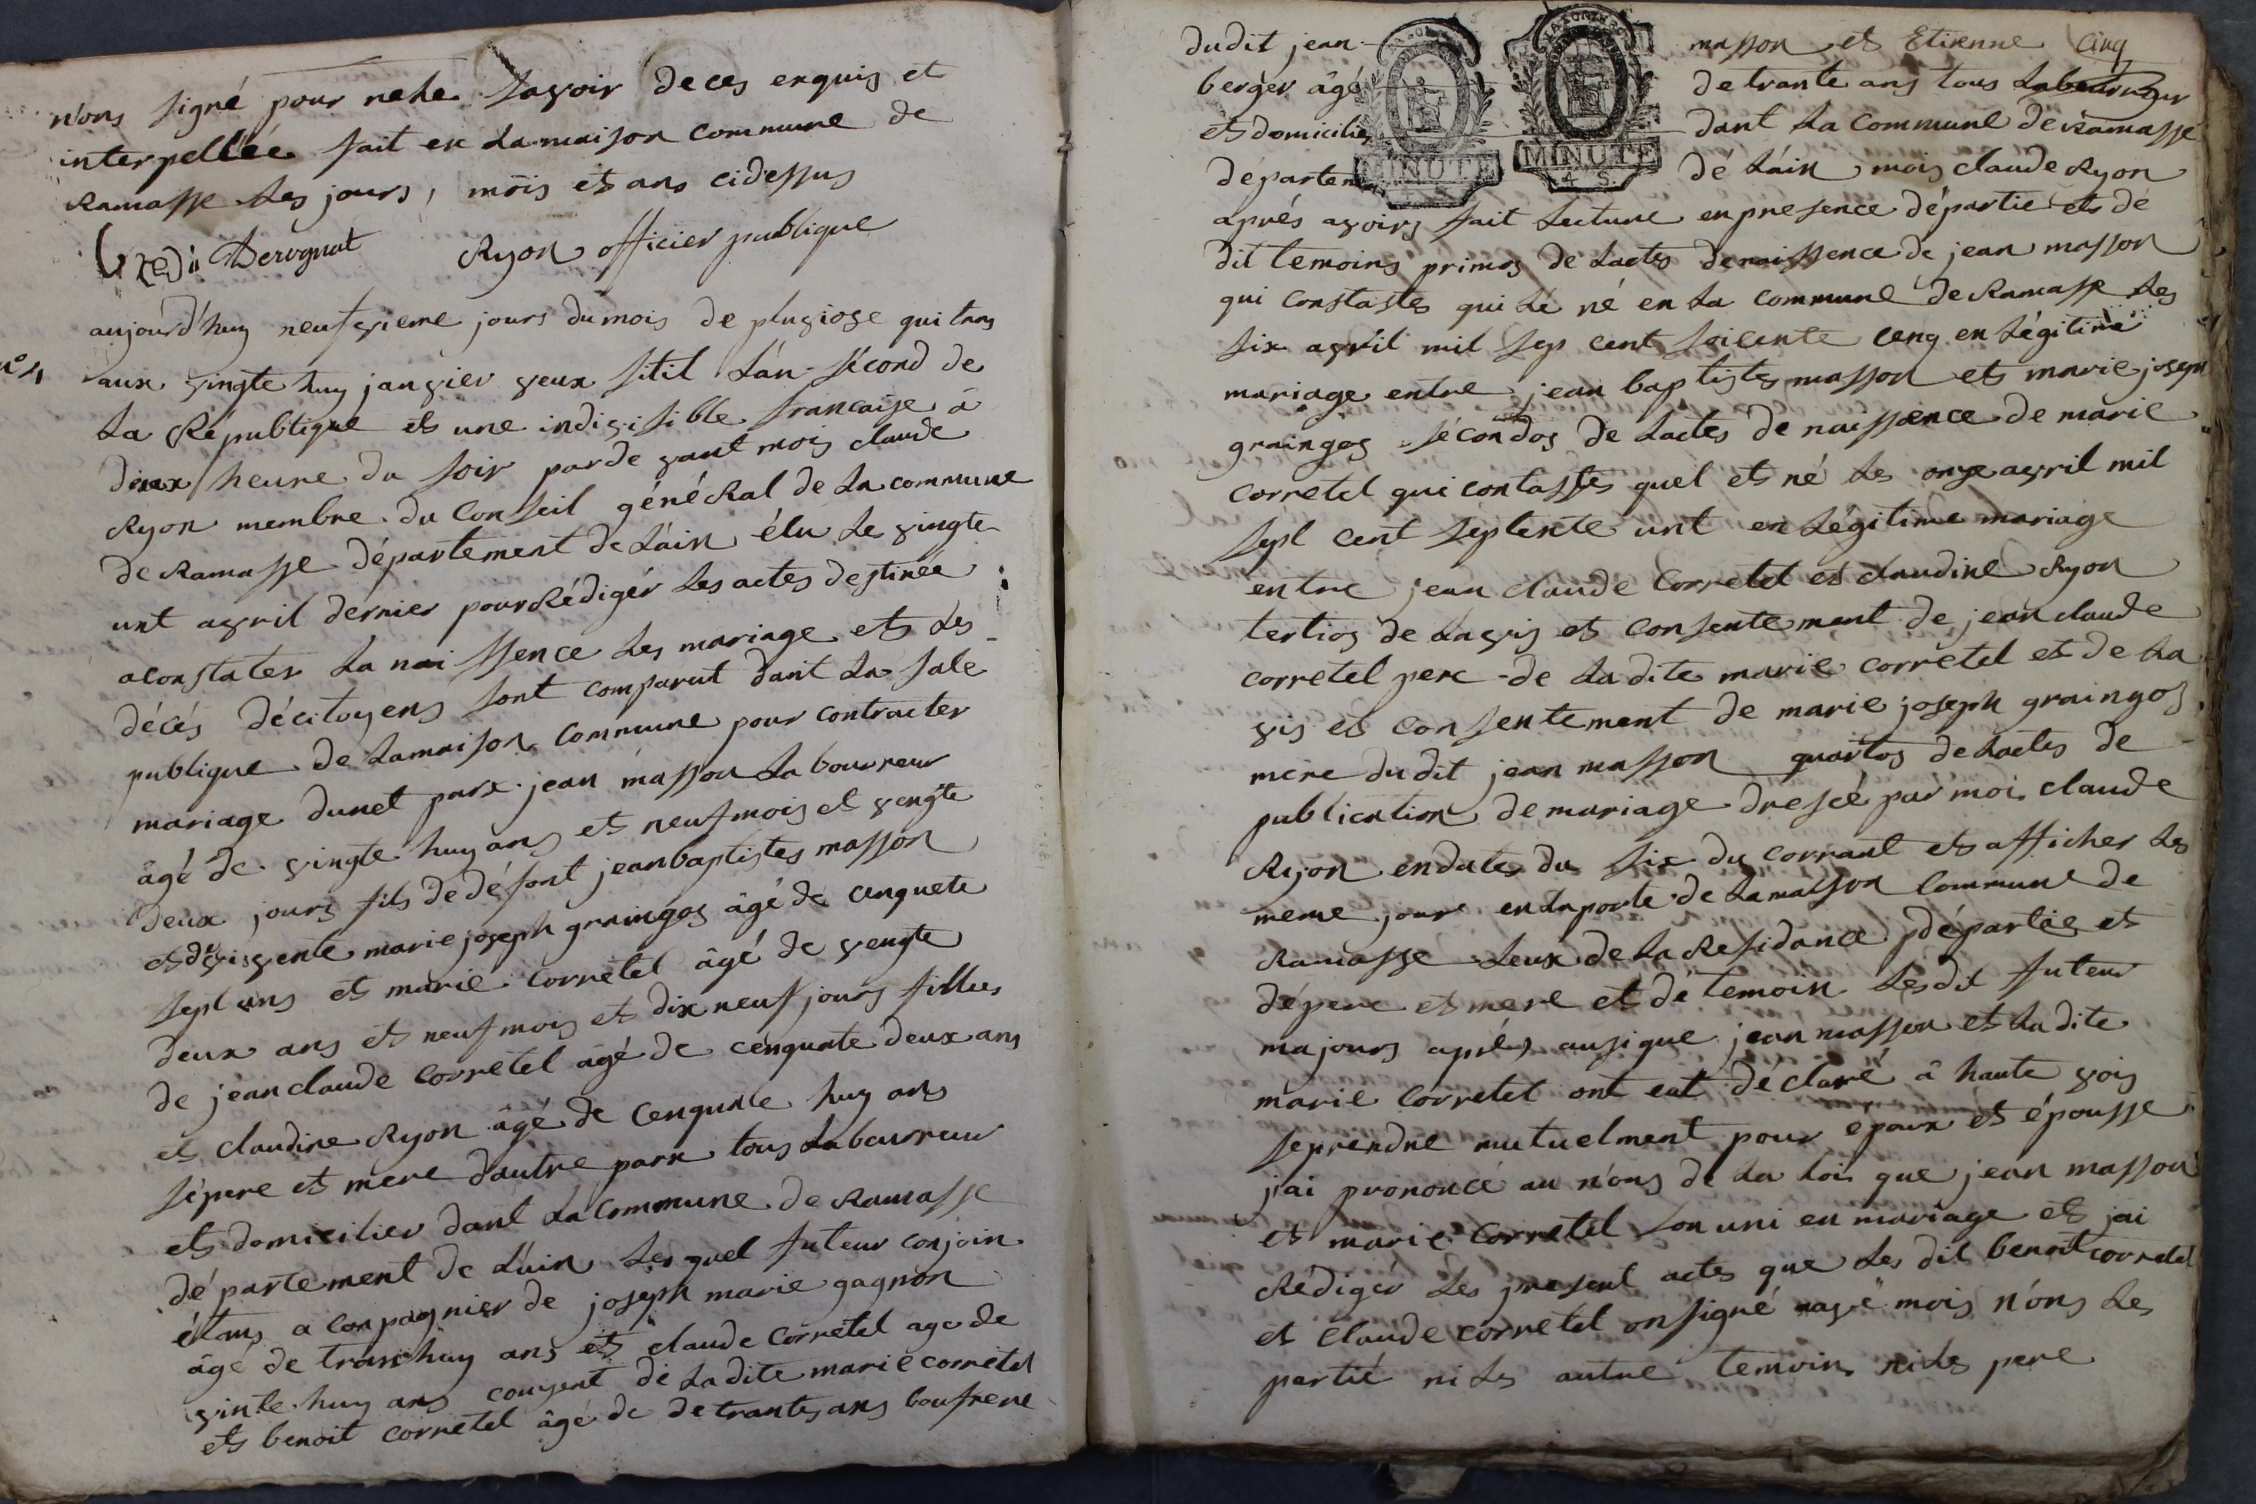 n'ons signé pour nehe savoir de ces enquis et
interpellée fait en la maison commune de
Ramasse les jours, mois et ans cidessus
Derognat Ryon officier publique
aujourd'huy neufvieme jours du mois de pluviose qui
aux vingte huy janvier veux stil l'an sécond de
la République et une indivisible francaise à
deux heure du soir par de vant mois claude
Ryon membre du conseil général de la commune
de Ramasse département de l'ain élu le vingte
unt avril dernier pour Rédigér les actes destinée
a constater la naissence les mariage et les
décés décitoyens sont comparut dant la sale
publique de la maison commune pour contracter
mariage dunet parx jean masson laboureur
âgé de vingte huy ans et neuf mois et vengte
deux jours fils de défont jean baptistes masson
et de vivente marie joseph graingos âgé de cenquete
sept ans et marie corretel âgé de vengte
deux ans et neuf mois et dix neuf jours filles
de jean claude corretel âgé de cenquante deux ans
et claudine Ryon âgé de cenquante huy ans
sépere et mere dautre parx tous laboureur
et domicilier dant la commune de Ramasse
département de l'ain les quel futeur conjoin
étans a conpagnier de joseph marie gagnon
âgé de trante huy ans et claude corretel age de
vinte huy ans de la dite marie corretel
et benoit corretel âgé de de trantes ans boufrere
n° 4
dudit jean masson et Etienne cinq
berger âgé de trante ans tous
et domicilie dant la commune de Ramasse
départem dé l'ain mois claude Ryon
MINUTE
MINUTE
4 S.
aprés avoirs fait lecture en presence départie et dé
dit temoins primos de lactes de naissence de jean masson
qui constastes qui lé né en la commune de Ramasse les
six avril mil sep cent soicente cenq en légitime
mariage entre jean baptistes masson et marie joseph
graingos sécondos de lactes de naissence de marie
corretel qui contastes quel et né les onze avril mil
sept cent septente unt en légitime mariage
entre jean claude corretel et claudine Ryon
tertios de lavis et consentement de jean claude
corretel pere de la dite marie corretel et de la
vis et consentement de marie joseph graingos
mère du dit jean masson quartos de lactes de
publication de mariage drescé par moi claude
Ryon en dates du six du corrant et afficher les
meme jour en la porte de la maison commune de
Ramasse leux de la Residance départie et
dépere et mere et dé temoin les dit futeur
majours aprés ausi que jean masson et la dite
marie corretel ont eut déclaré â haute vois
se prendre mutuelment pour époux et épousse
jai prononcé au n'ons de la lois que jean masson
et marie corretel son uni en mariage et jai
Rédigér les present actes que les dit benoit corretel
et claude corretel on signé avé mois n'ons les
partié ni les autre temoins ni les pere